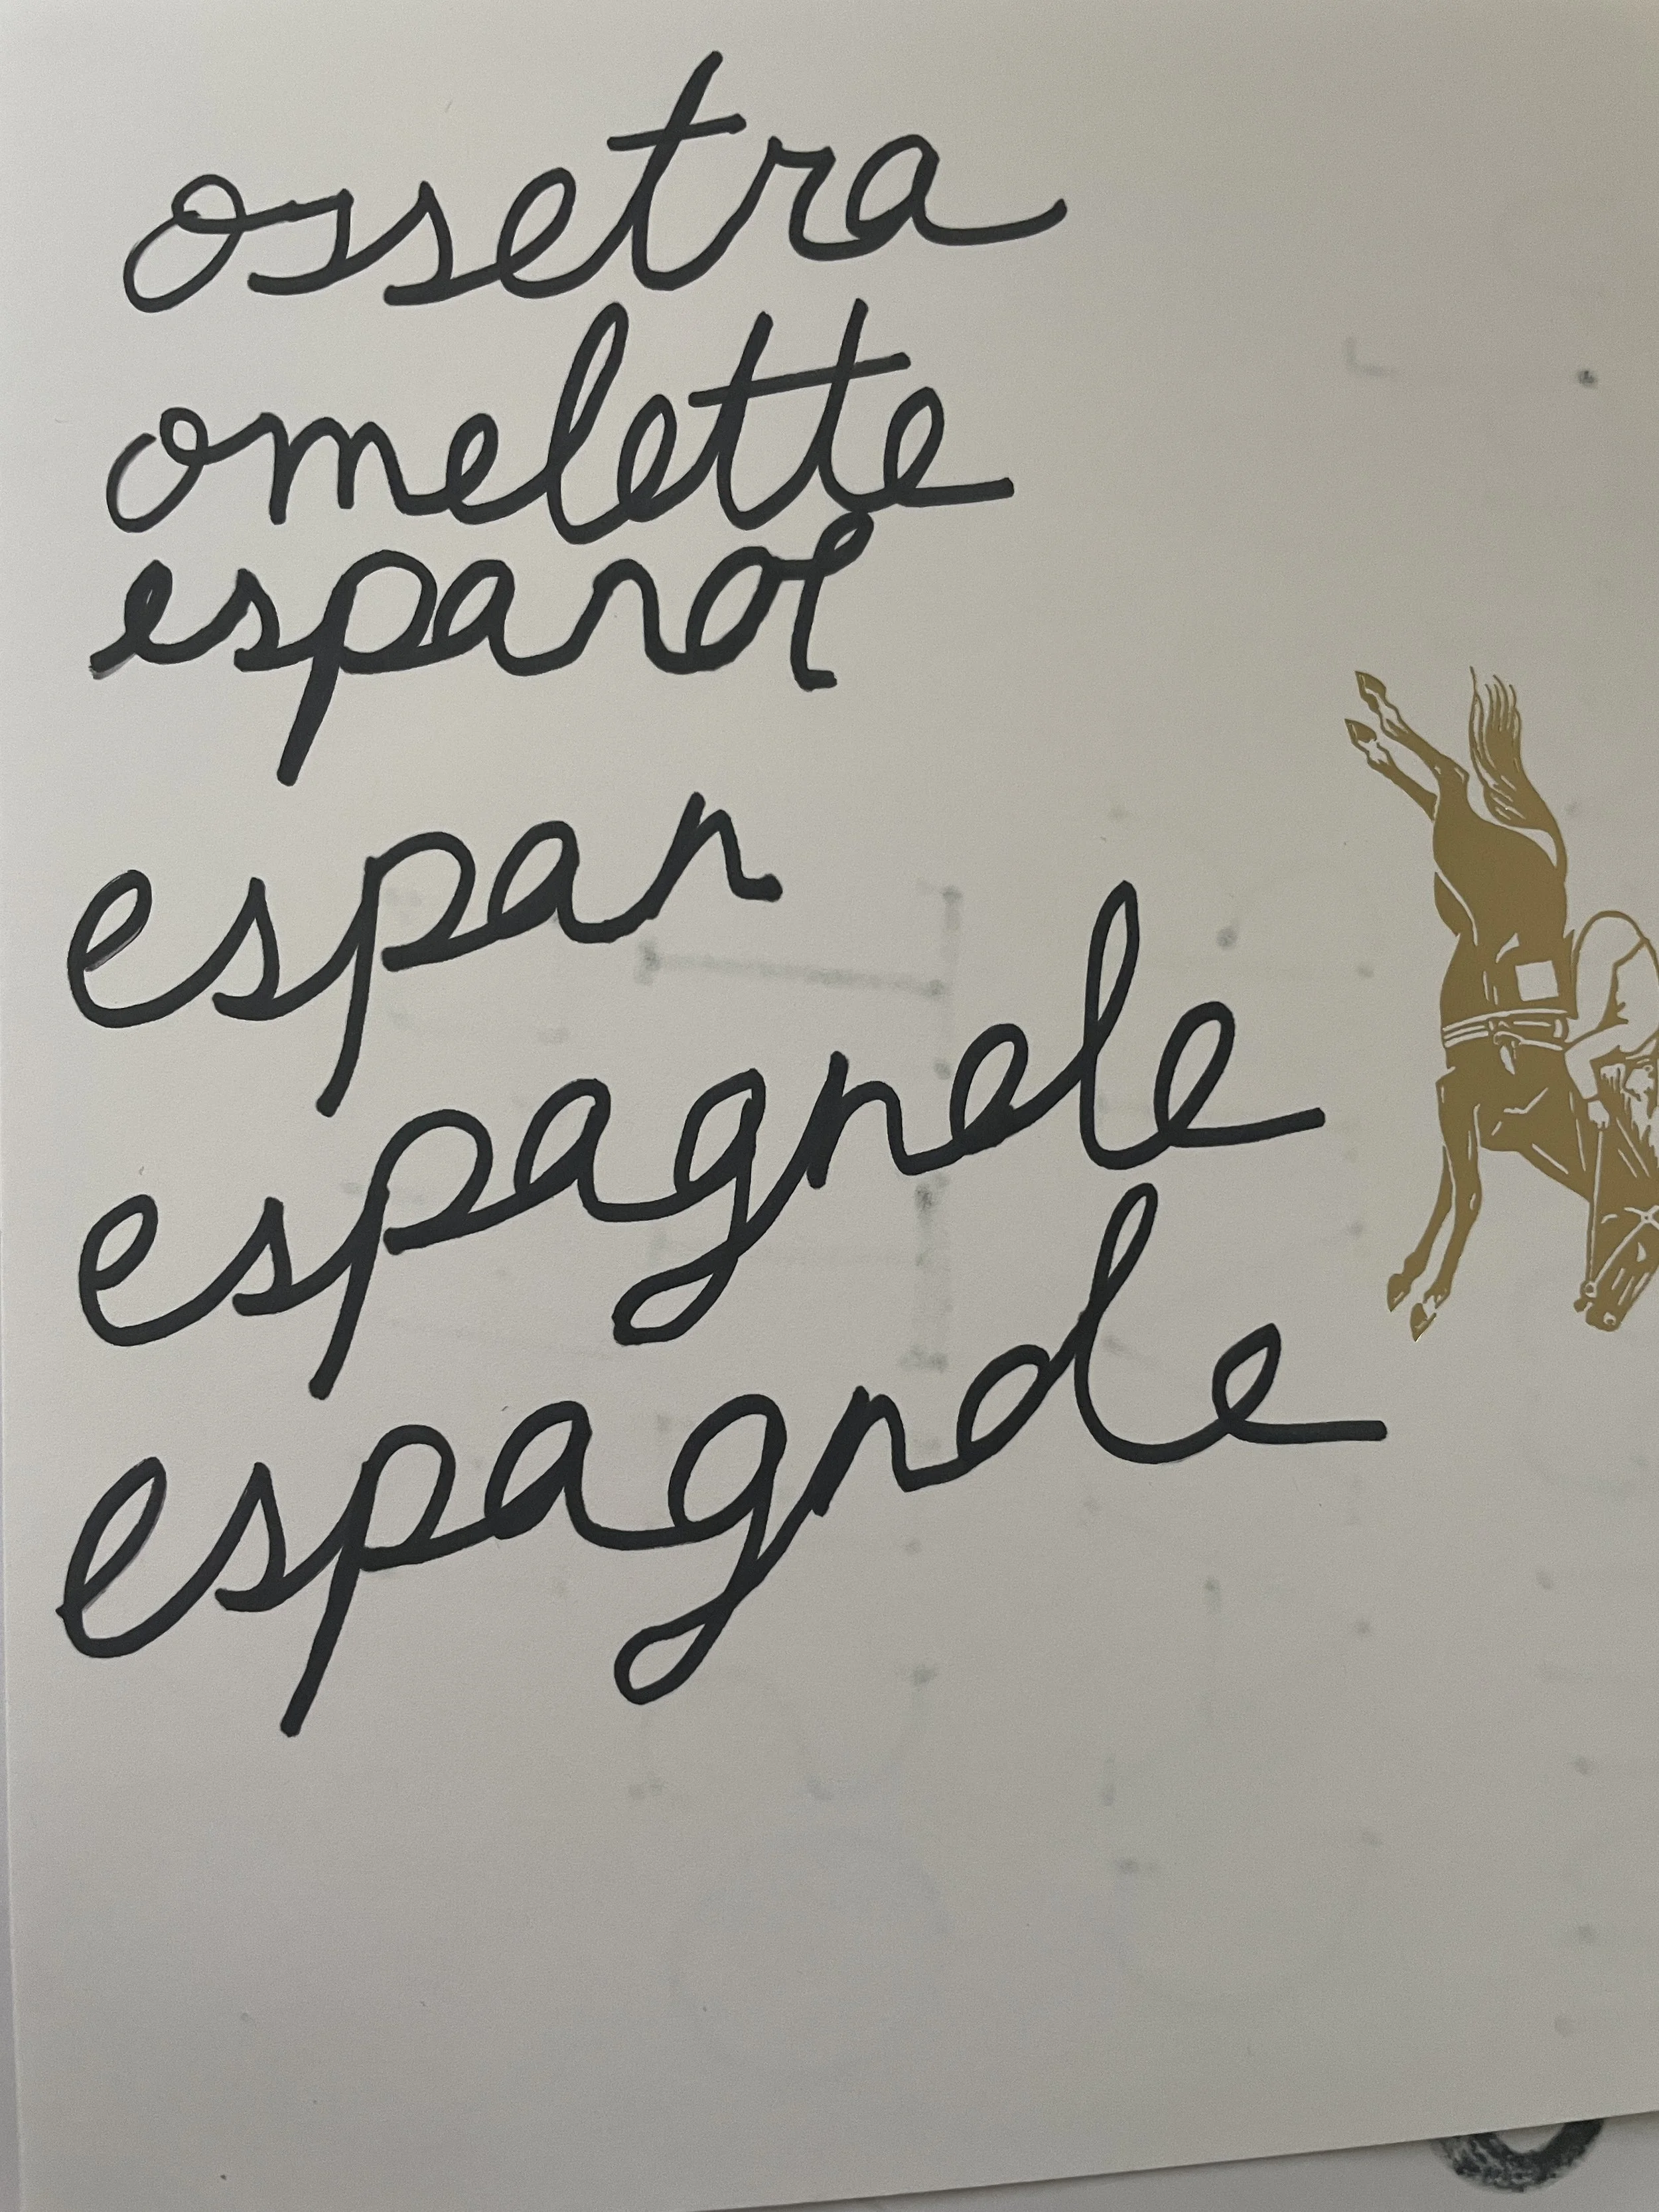 ossetra
omelette
espanol
espan
espagnole
espagnole